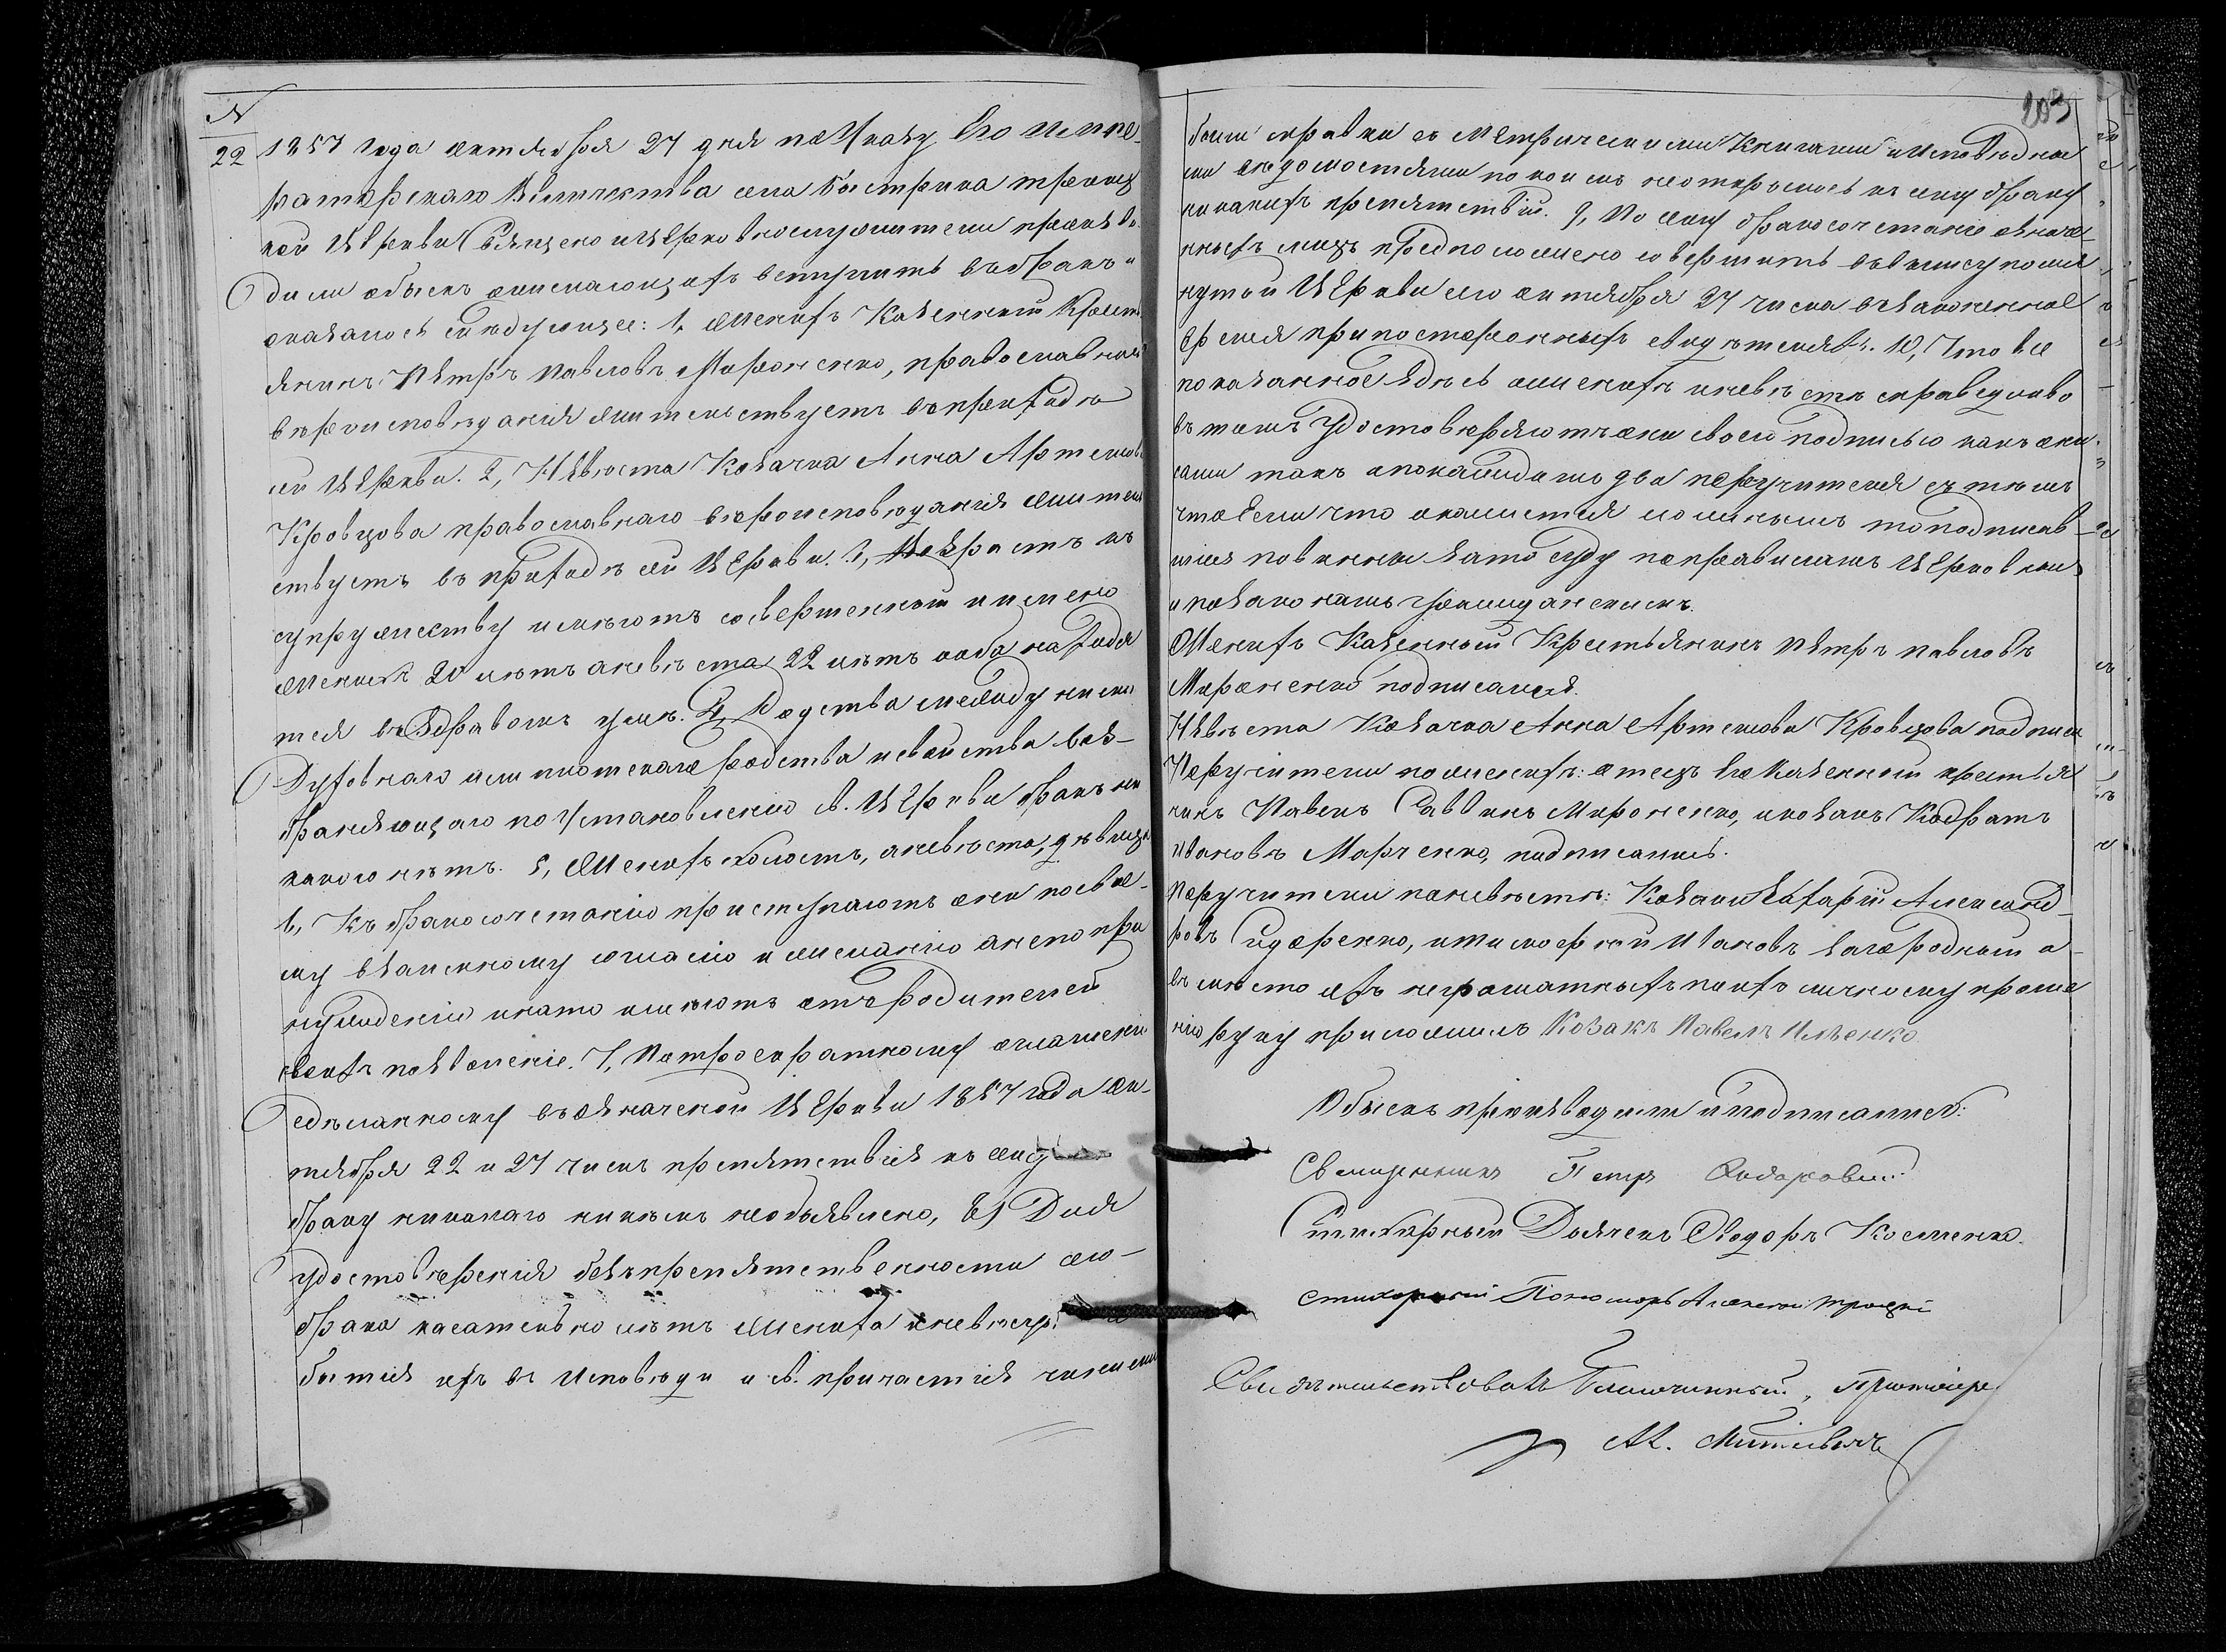 N
22
1857 года октября 27 дня по Указу Его Импе-
раторскаго Величества села Быстрика троиц
кой Церкви Священно и Церковнослужители произво
дили обыск о желающихъ вступить въ бракъ и
оказалось следующее: 1, Женихъ Казенный Крест
янинъ Петръ Павловъ Мироненко, православнаго
вероисповеданія жительствуетъ въ приходе
сей Церкви. 2, Невеста Козачка Анна Артемова
Кровцова православнаго вероисповеданія житель
ствуетъ въ приходе сей Церкви. 3, Возрастъ къ
супружеству имеютъ совершенный и именно
женихъ 20 летъ а невеста 22 летъ и оба находя
тся въ здравомъ уме. 4, Родства между ними
Духовнаго или плотскаго родства и свойства воз-
браняющаго по Установленію св. Церкви бракъ ни
какого нетъ. 5, Женихъ холостъ, а невеста, девица
6, Къ бракосочетанію приступаютъ они по свое-
му взаимному согласію и желанію а не по при
нужденію и на то имеютъ отъ родителей
своихъ позволеніе. 7, По троекратному оглашенію
сделанному въ означеной Церкви 1857 года ок-
тября 22 и 27 чиселъ препятствія къ сему
браку никакаго никемъ не объявлено, 8, Для
удостоверенія безпрепятственности сего
брака касательно летъ жениха и невесты
бытія ихъ въ Исповеди и св. причастія чинены
203
были справки съ Метрическими Книгами и Исповедны
ми ведомостями по коимъ не открылось къ сему браку
никакихъ препятствій. 9, По сему бракосочетаніе означе-
нныхъ лицъ предположено совершить въ вышеупомя
нутой Церкви сего октября 27 числа въ законенное
время при постороннихъ свидетеляхъ. 10, Что все
показанное здесь о женихе и невесте справедливо
въ томъ удостоверяютъ они своею подписью какъ они
сами такъ и по каждомъ два поручителя съ темъ
что если что окажется ложнымъ то подписав-
шіеся повинны за то суду по правиламъ Церковнымъ
и по законамъ гражданскимъ.
Женихъ Казенный Крестьянинъ Петръ Павловъ
Мироненко подписался.
Невеста Козачка Анна Артемова Кровцова подписа
Поручители по женихе: отецъ его Казенный крестья
нинъ Павелъ Саввинъ Мироненко, и козакъ Кодратъ
Ивановъ Марченко, подписались.
Поручители по невесте: Козаки Захарій Александ-
ровъ Сидоренко, и Тимофей Ивановъ Загородный а
вместо ихъ неграмотныхъ по ихъ личному проше
нію руку приложилъ Козакъ Павелъ Ильенко
Обыскъ производили и подписались:
Священникъ Петръ
Стихарный Дьячекъ Ѳеодоръ Косменко.
стихарный Пономарь Алексей Троцкій
Свидетельствовалъ Благочинный, Протоіере